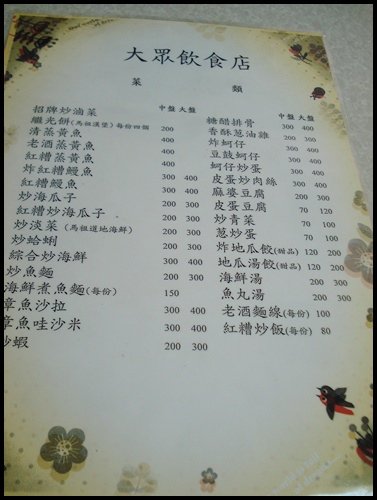 大眾飲食店
菜 類
中盤 大盤
招牌炒滷菜
繼光餅(馬祖漢堡)每份四個 200
清蒸黃魚 400
老酒蒸黃魚 400
紅糟蒸黃魚
炸紅糟鰻魚 300 400
紅糟鰻魚 300 400
炒海瓜子 300 400
紅糟炒海瓜子 300 400
炒淡菜(馬祖道地海鮮) 200 300
炒蛤蜊 200 300
綜合炒海鮮 300 400
炒魚麵 200
海鮮煮魚麵(每份) 150
章魚沙拉 300 400
章魚哇沙米 300 400
炒蝦 200 300
中盤 大盤
糖醋排骨 300 400
香酥蔥油雞 200 400
炸蚵仔 300 400
豆鼓蚵仔 300 400
蚵仔炒蛋 300 400
皮蛋炒肉絲 300 400
麻婆豆腐 200
皮蛋豆腐 70 120
炒青菜 100 200
蔥炒蛋 70 100
炸地瓜餃(甜品) 120 200
地瓜湯餃(甜品) 120 200
海鮮湯 200 300
魚丸湯 200 300
老酒麵線(每份) 100
紅糟炒飯(每份) 80